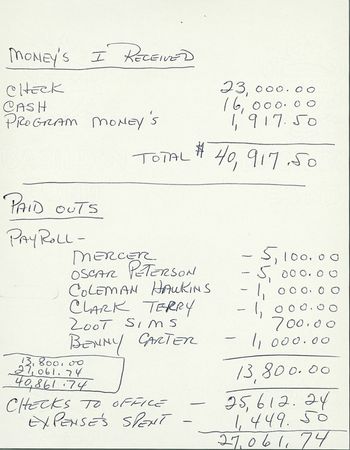 MONEY'S I RECEIVED
CHECK 23,000.00
CASH 16,000.00
PROGRAM MONEY'S 1,917.50
TOTAL $ 40,917.50
PAID OUTS
PAYROLL -
MERCER - 5,100.00
OSCAR PETERSON - 5,000.00
COLEMAN HAWKINS - 1,000.00
CLARK TERRY - 1,000.00
ZOOT SIMS 700.00
BENNY CARTER - 1,000.00
13,800.00
13,800.00
27,061.74
40,861.74
CHECKS TO OFFICE - 25,612.24
EXPENSE'S SPENT - 1,449.50
27,061.74